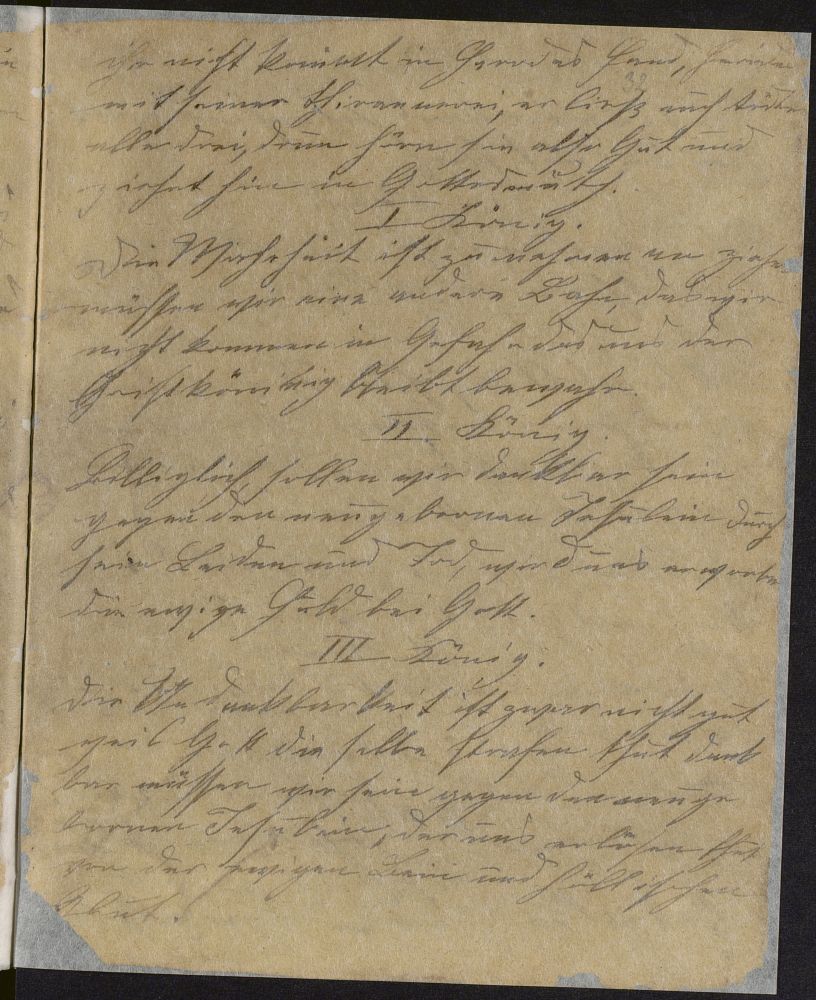 ihr nicht kommt in Herodes Hand,
38
mit seiner Thirannerei, er ließ auch tödten
alle drei, drum hörn sie also Gut und
ziehet hin in Gottesmuth.
I König.
Die Wahrheit ist zu nehmen an ziehen
müssen wir eine andere Bahn, das wir
nicht kommen in Gefahr das uns der
Christkönig bleibt bewahr.
II König.
Billiglich, sollen wir dankbar sein
gegen den neugebornen Jesulein durch
sein Leiden und Tod, wird uns erworben
die ewige Huld bei Gott.
III König.
Die Undankbarkeit ist zwar nicht gut
weil Gott die selbe strafen thut dank
bar müssen wir sein gegen den neuge
bornen Jesulein, der uns erlösen thut
von der ewigen Pein und höllischen
Glut.